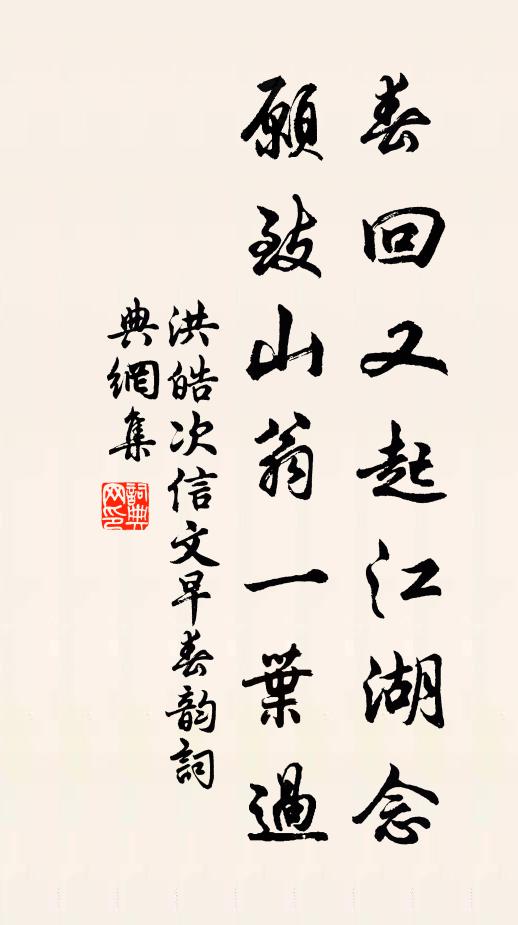 春回又起江湖念
願致山翁一葉過
洪皓次信文早春韵詞
典網集
詞典
网印